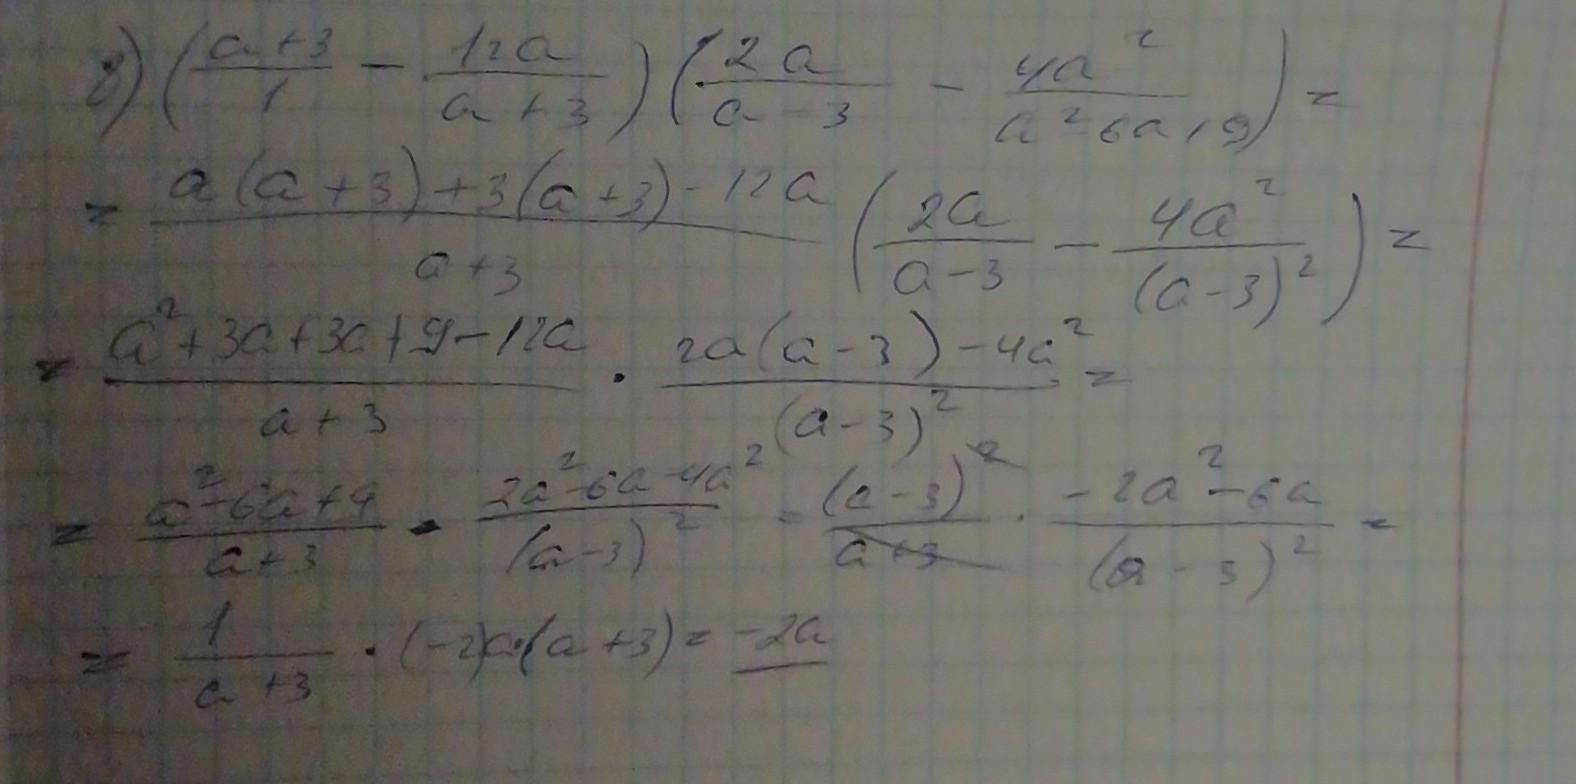 в) ( (a+3)/1 − 12a/(a+3) ) ( 2a/(a−3) − 4a²/(a² 6a+9) ) =
= (a(a+3)+3(a+3)−12a)/(a+3) ( 2a/(a−3) − 4a²/(a−3)² ) =
= (a²+3a+3a+9−12a)/(a+3) · (2a(a−3)−4a²)/(a−3)² =
= (a²−6a+9)/(a+3) · (2a²−6a−4a²)/(a−3)² = (a−3)²/(a+3) · (−2a²−6a)/(a−3)² =
= 1/(a+3) · (−2)a·(a+3) = −2a